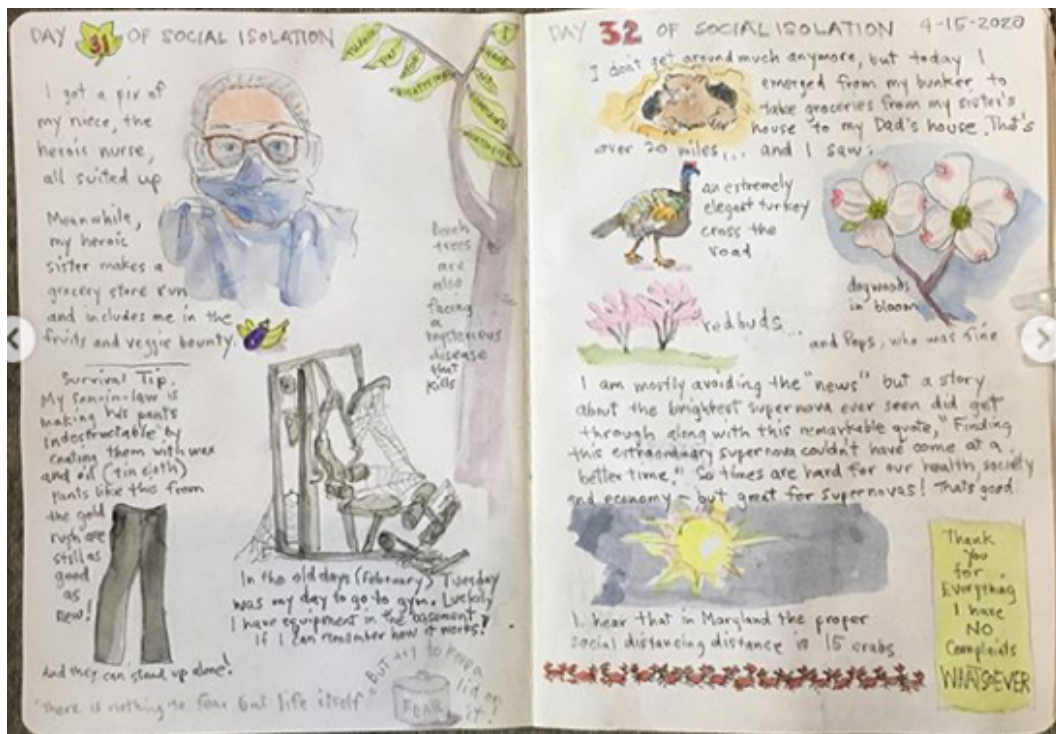 DAY 31 OF SOCIAL ISOLATION
I got a pix of
my niece, the
heroic nurse,
all suited up
Meanwhile,
my heroic
sister makes a
grocery store run
and includes me in the
fruits and veggie bounty.
Beech
trees
are
also
facing
a
mysterious
disease
that
kills
Survival Tip.
My son-in-law is
making his pants
indestructable by
coating them with wax
and oil (tin cloth)
pants like this from
the gold
rush are
still as
good
as
new!
And they can stand up alone!
In the old days (February) Tuesday
was my day to go to gym. Luckily
I have equipment in the basement,
if I can remember how it works!
"There is nothing to fear but life itself"
But try to keep a
lid on
it!
FEAR
DAY 32 OF SOCIAL ISOLATION 4-15-2020
I don't get around much anymore, but today I
emerged from my bunker to
take groceries from my sister's
house to my Dad's house. That's
over 20 miles... and I saw:
an extremely
elegant turkey
cross the
road
dogwoods
in bloom
redbuds...
and Pops, who was fine
I am mostly avoiding the "news" but a story
about the brightest supernova ever seen did get
through along with this remarkable quote, "Finding
this extraordinary supernova couldn't have come at a
better time." So times are hard for our health, society
and economy - but great for supernovas! That's good
I hear that in Maryland the proper
social distancing distance is 15 crabs
Thank
You
for
Everything
I have
NO
Complaints
WHATSOEVER